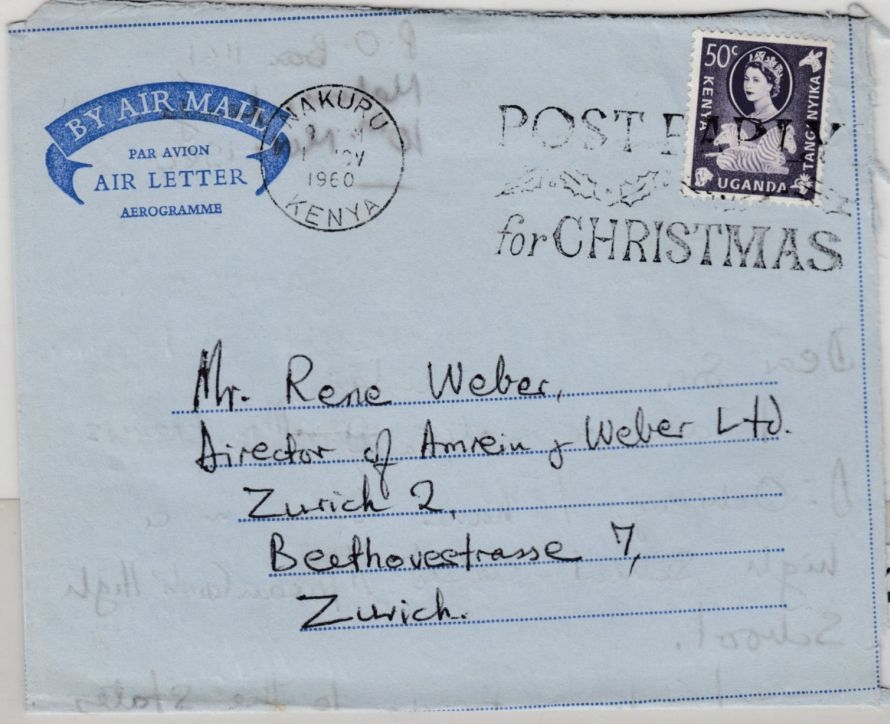 BY AIR MAIL
PAR AVION
AIR LETTER
AEROGRAMME
NAKURU
1960
KENYA
POST EARLY
for CHRISTMAS
50c
KENYA
UGANDA
TANGANYIKA
Mr. Rene Weber,
Director of Amrein & Weber Ltd.
Zurich 2,
Beethovestrasse 7,
Zurich.